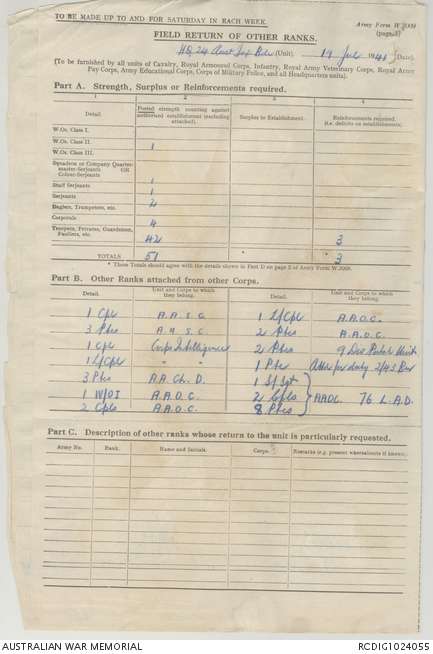 TO BE MADE UP TO AND FOR SATURDAY IN EACH WEEK.
Army Form W.3009
(page 3)
FIELD RETURN OF OTHER RANKS.
HQ 24 Aust Inf Bde (Unit). 19 July 1941 (Date).
(To be furnished by all units of Cavalry, Royal Armoured Corps, Infantry, Royal Army Veterinary Corps, Royal Army
Pay Corps, Army Educational Corps, Corps of Military Police, and all Headquarters units).
Part A. Strength, Surplus or Reinforcements required.
1 2 3 4
Detail. Posted strength counting against authorized establishment (excluding attached). Surplus to Establishment. Reinforcements required (i.e. deficits on establishment).
W.Os. Class I.
W.Os. Class II. 1
W.Os. Class III.
Squadron or Company Quarter-
master-Serjeants OR
Colour-Serjeants
Staff Serjeants 1
Serjeants 1
Buglers, Trumpeters, etc. 2
Corporals 4
Troopers, Privates, Guardsmen,
Fusiliers, etc. 42 3
TOTALS 51 * * 3
* These Totals should agree with the details shown in Part D on page 2 of Army Form W.3009.
Part B. Other Ranks attached from other Corps.
Detail. Unit and Corps to which they belong. Detail. Unit and Corps to which they belong.
1 Cpl A.A.S.C. 1 L/Cpl A.A.O.C.
3 Ptes A.A.S.C 2 Ptes A.A.O.C.
1 Cpl Corps Intelligence 2 Ptes 9 Div Postal Unit
1 L/Cpl " " 1 Pte Atta for duty 2/43 Bn
3 Ptes A.A.Ch.D. 1 S/Sgt
1 W/O I A.A.O.C. 2 Cpls AAOC. 76 L.A.D.
2 Cpls A.A.O.C. 8 Ptes
Part C. Description of other ranks whose return to the unit is particularly requested.
Army No. Rank. Name and Initials. Corps. Remarks (e.g. present whereabouts if known).
AUSTRALIAN WAR MEMORIAL RCDIG1024055